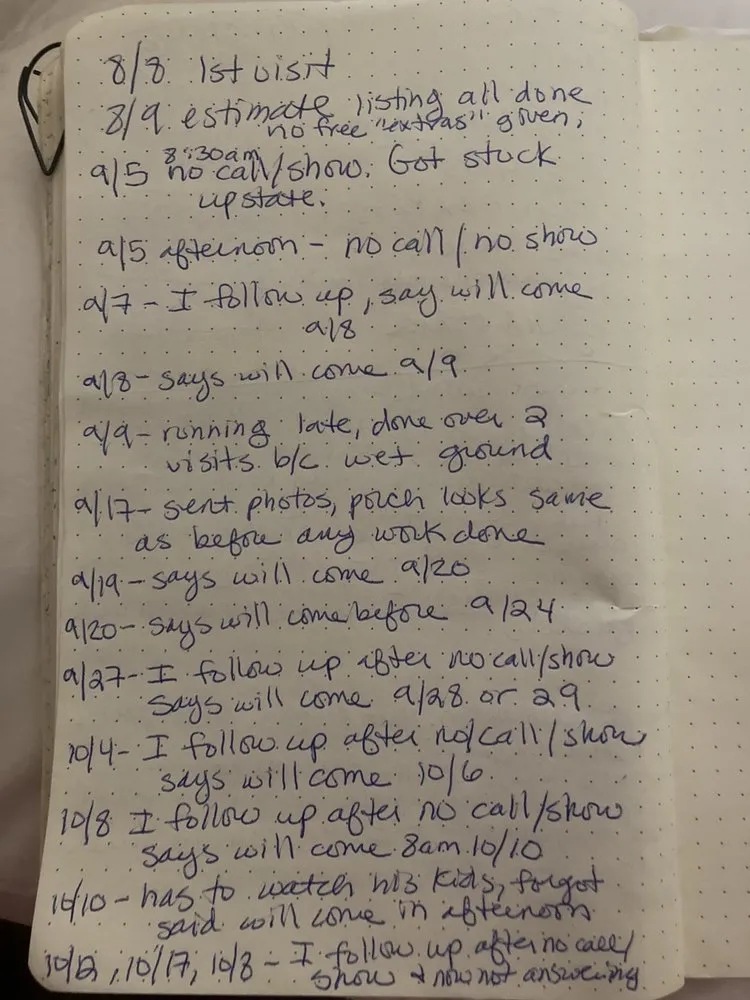 8/8 1st visit
8/9 estimate listing all done
no free "extras" given;
8:30am
9/5 no call/show. Got stuck
upstate.
9/5 afternoon - no call / no show
9/7 - I follow up, say will come
9/8
9/8 - says will come 9/9
9/9 - running late, done over 2
visits b/c wet ground
9/17 - sent photos, porch looks same
as before any work done
9/19 - says will come 9/20
9/20 - says will come before 9/24
9/27 - I follow up after no call/show
says will come 9/28 or 29
10/4 - I follow up after no/call/show
says will come 10/6
10/8 I follow up after no call/show
says will come 8am 10/10
10/10 - has to watch his kids, forgot
said will come in afternoon
10/12, 10/17, 10/8 - I follow up after no call/
show & now not answering